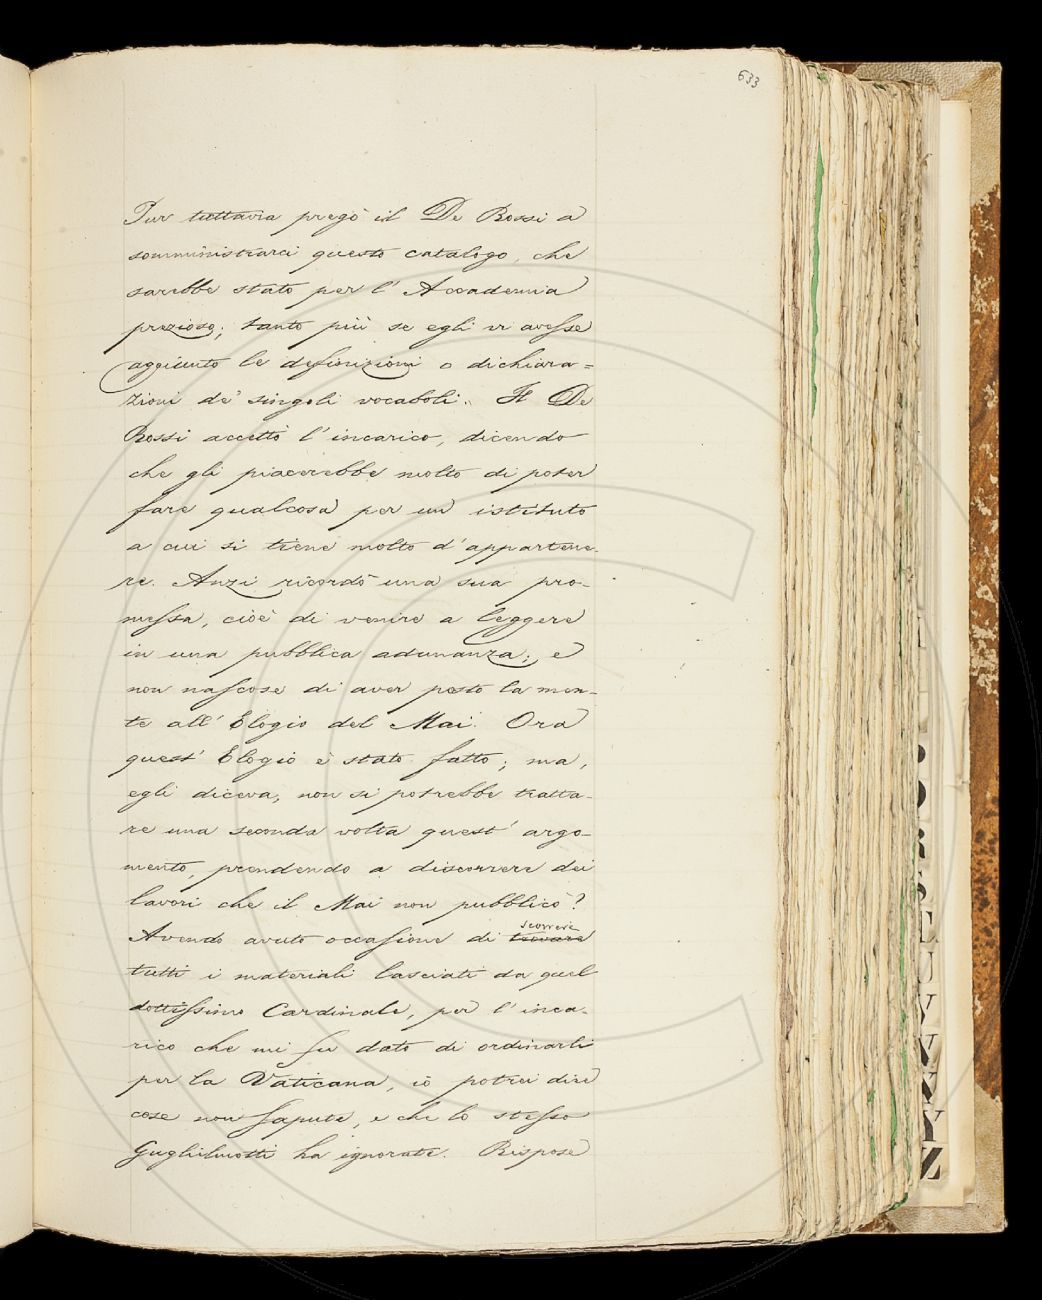 633
Pur tuttavia pregò il De Rossi a
somministrarci questo catalogo, che
sarebbe stato per l' Accademia
prezioso; tanto più se egli vi avesse
aggiunto le definizioni o dichiara=
zioni de' singoli vocaboli. Il De
Rossi accettò l'incarico, dicendo
che gli piacerebbe molto di poter
fare qualcosa per un istituto
a cui si tiene molto d'appartene-
re. Anzi ricordò una sua pro-
messa, cioè di venire a leggere
in una pubblica adunanza; e
non nascose di aver posto la men-
te all' Elogio del Mai. Ora
quest' Elogio è stato fatto; ma,
egli diceva, non si potrebbe tratta-
re una seconda volta quest' argo-
mento, prendendo a discorrere dei
lavori che il Mai non pubblicò?
scorrere
Avendo avuto occasione di trovare
tutti i materiali lasciati da quel
dottissimo Cardinale, per l'inca-
rico che mi fu dato di ordinarli
per la Vaticana, io potrei dire
cose non sapute, e che lo stesso
Guglielmotti ha ignorate. Rispose
L
D
R
S
E
U
V
X
Y
Z